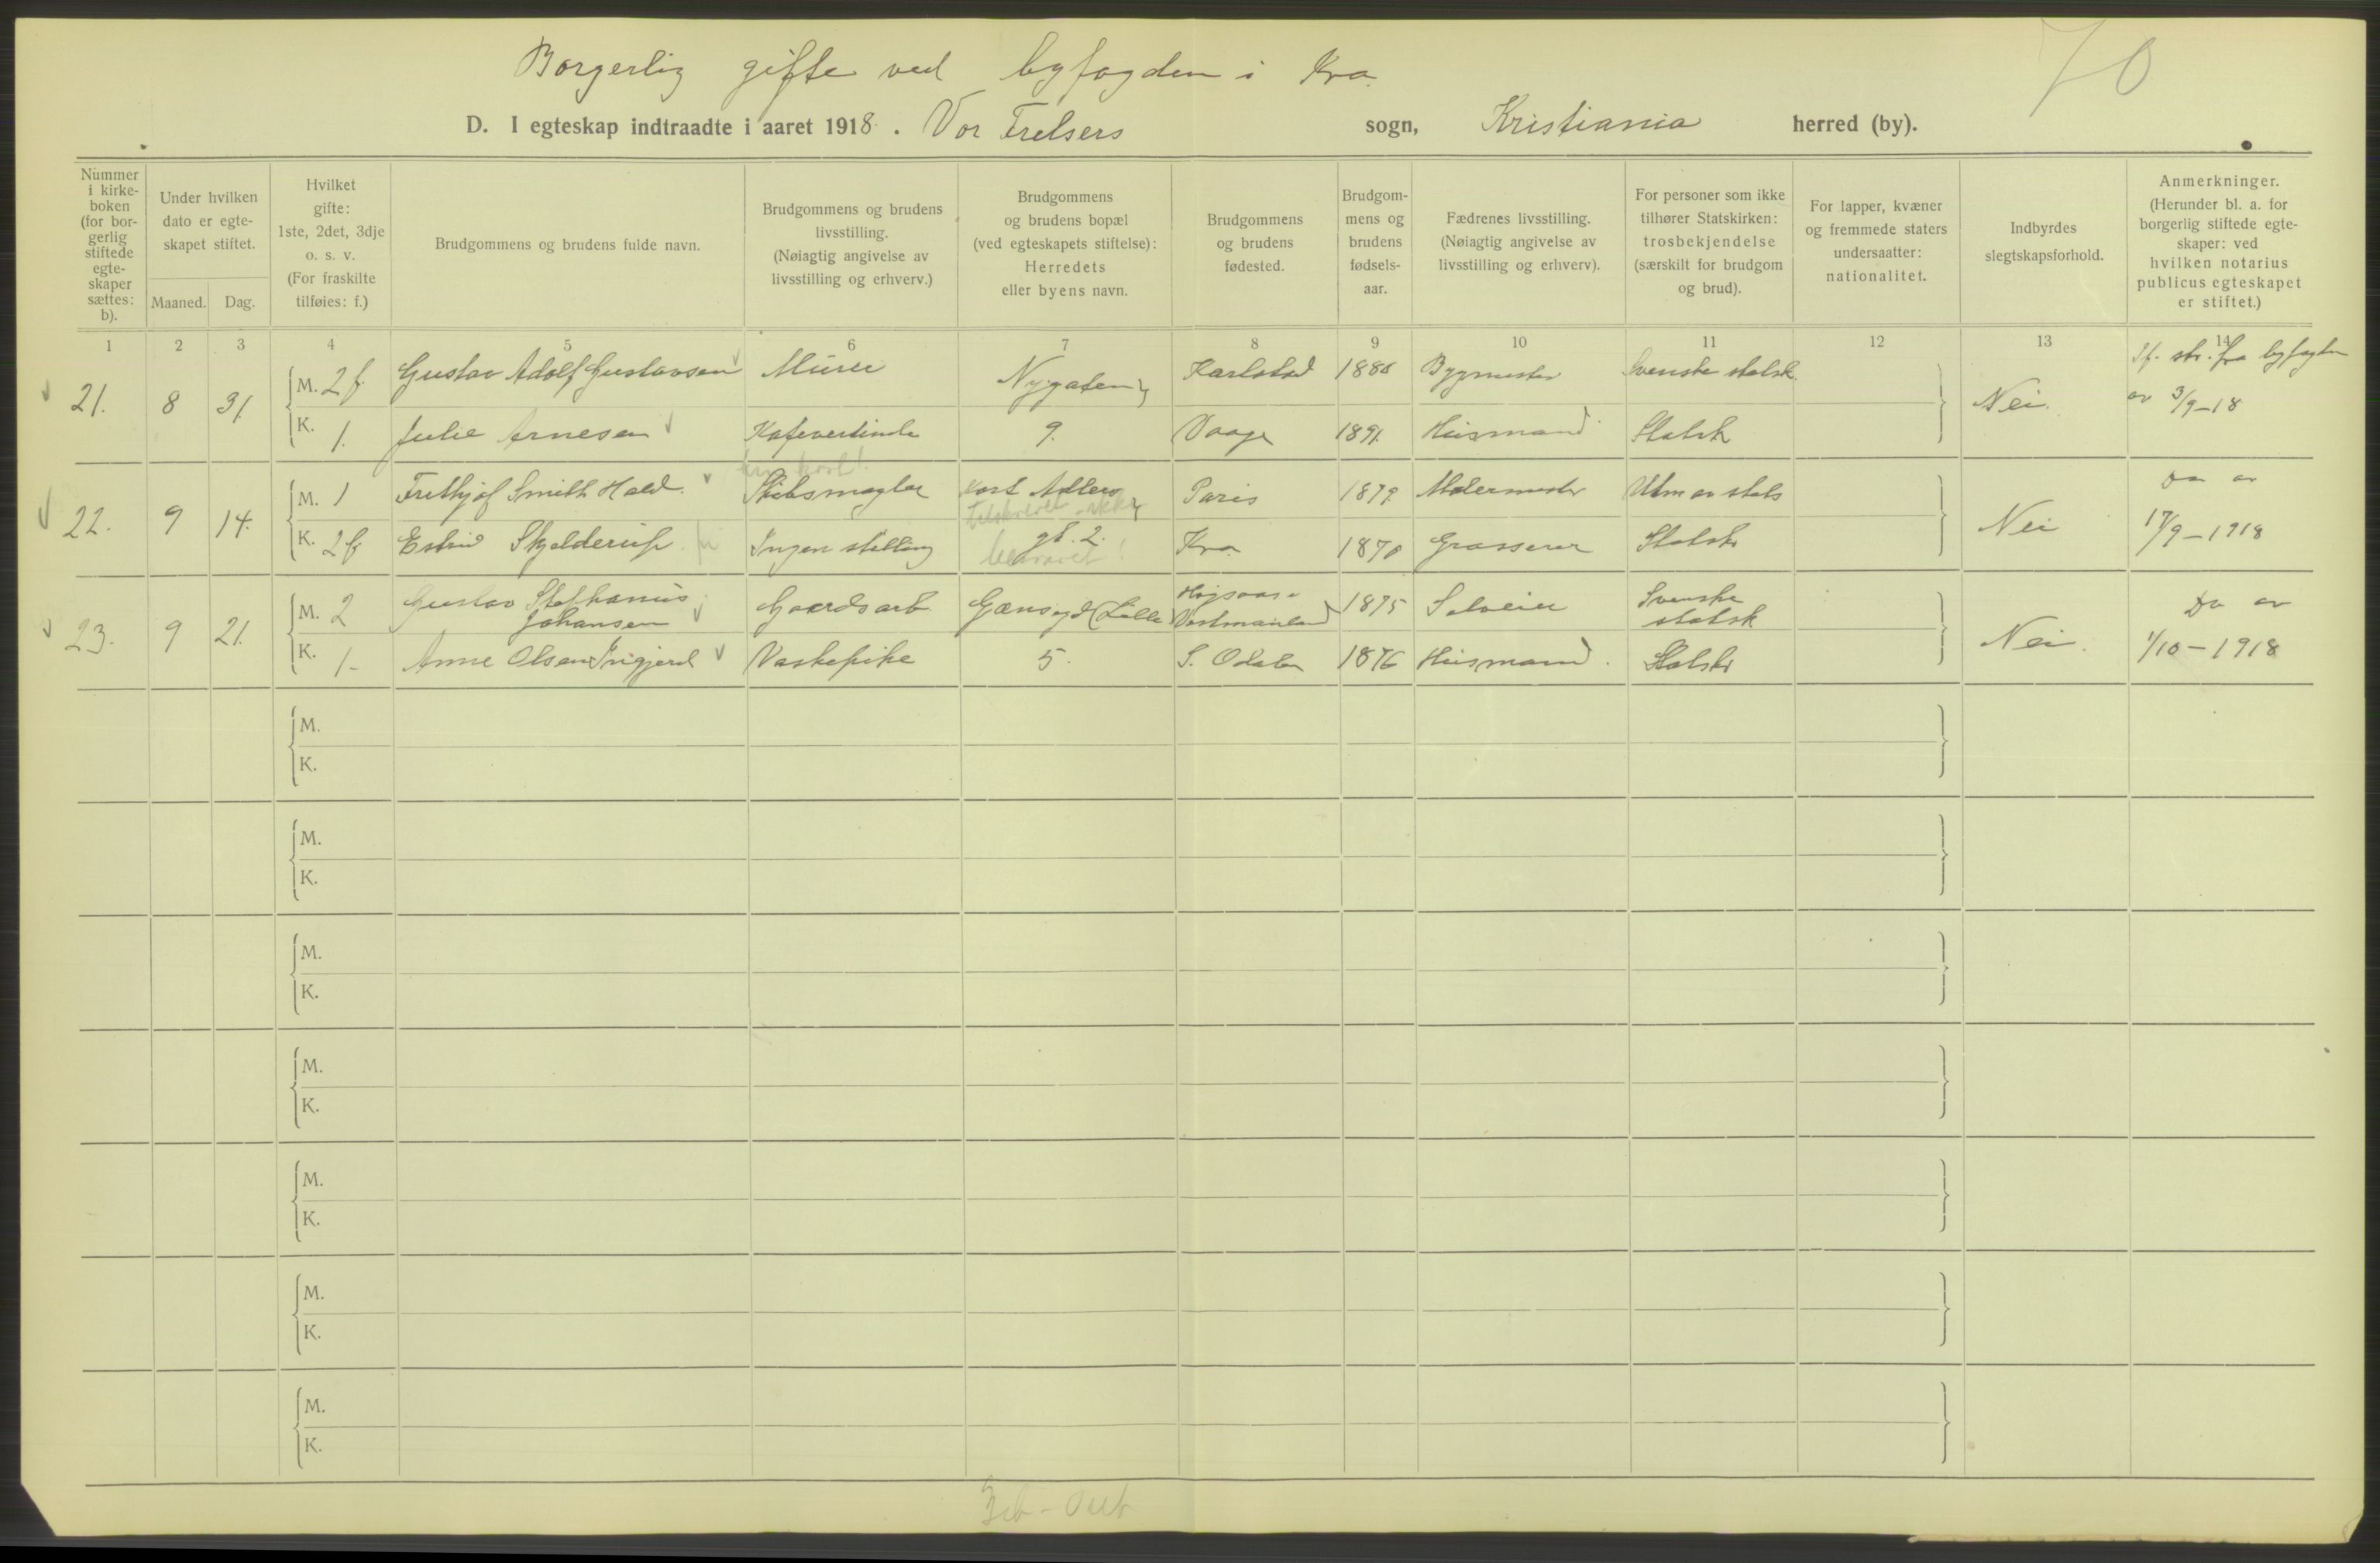 Borgerlig gifte ved byfogden i Kra.
70
D. I egteskap indtraadte i aaret 1918. Vor Frelsers sogn, Kristiania herred (by).
Nummer i kirke-boken (for bor-gerlig stiftede egte-skaper sættes: b).
Under hvilken dato er egte-skapet stiftet.
Maaned. Dag.
Hvilket gifte: 1ste, 2det, 3dje o. s. v. (For fraskilte tilføies: f.)
Brudgommens og brudens fulde navn.
Brudgommens og brudens livsstilling. (Nøiagtig angivelse av livsstilling og erhverv.)
Brudgommens og brudens bopæl (ved egteskapets stiftelse): Herredets eller byens navn.
Brudgommens og brudens fødested.
Brudgom-mens og brudens fødsels-aar.
Fædrenes livsstilling. (Nøiagtig angivelse av livsstilling og erhverv).
For personer som ikke tilhører Statskirken: trosbekjendelse (særskilt for brudgom og brud).
For lapper, kvæner og fremmede staters undersaatter: nationalitet.
Indbyrdes slegtskapsforhold.
Anmerkninger. (Herunder bl. a. for borgerlig stiftede egte-skaper: ved hvilken notarius publicus egteskapet er stiftet.)
1 2 3 4 5 6 7 8 9 10 11 12 13 14
21. 8 31. M. 2 f. Gustav Adolf Gustavsen Murer Nygaten Karlstad 188 Bygmester Svenske statsk. Nei. Jf. skr. fra byfogden
K. 1. Julie Arnesen Kafevertinde 9. Vaage 1891. Husmand Statsk av 3/9-18
22. 9 14. M. 1 Frithjof Smith Hald. Skibsmægler Kort Adlers Paris 1879. Malermester Utm av stats Nei Do av
tilskrevet - ikke
K. 2 f. Estrid Skjelderup Ingen stilling gt. 2. Kra. 1870 Grosserer Statsk 17/9-1918
besvaret!
23. 9 21. M. 2 Gustav Stephanus Johansen Gaardsarb. Vestmanland 1875 Selveier Svenske statsk Nei. Do av
K. 1 - Anne Olsen Vaskepike 5. S. Odalen 1876 Husmand. Statsk 1/10-1918
M.
K.
M.
K.
M.
K.
M.
K.
M.
K.
M.
K.
M.
K.